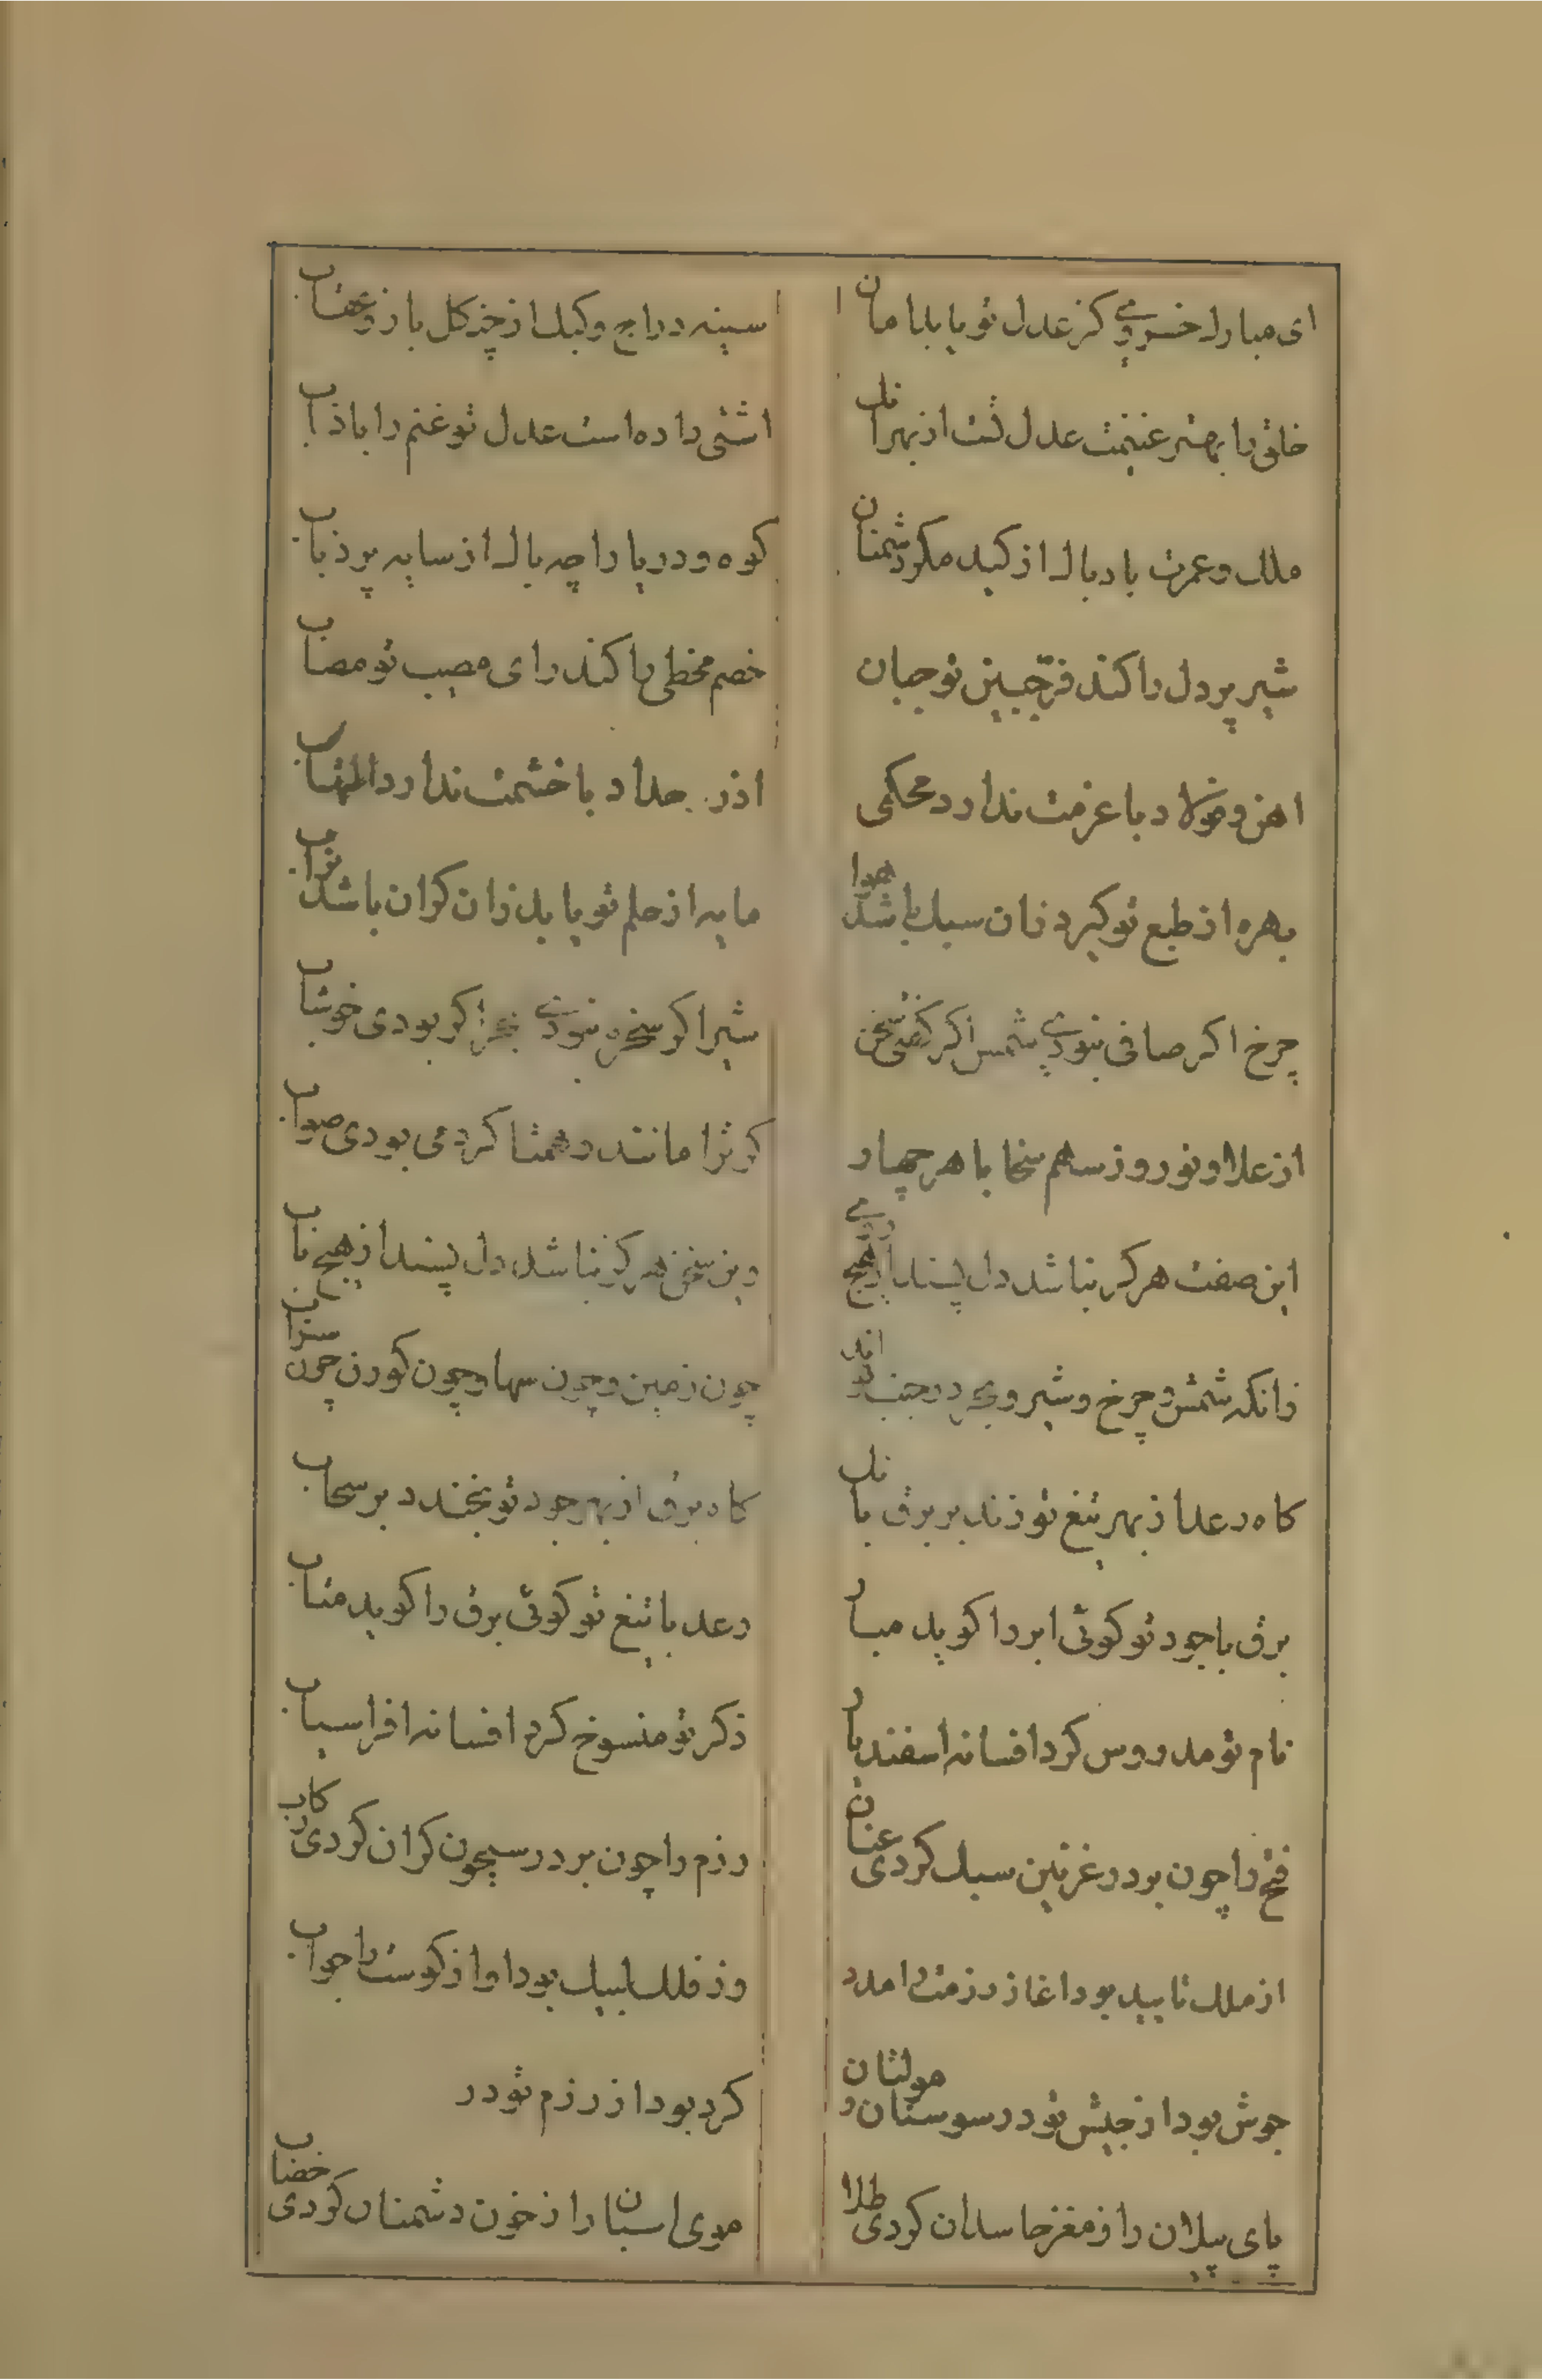 ای مبارک خسروی کز عدل تو یابد امان
سینه دراج و کبک از چنکل باز و عقاب
خلق را بهتر غنیمت عدل تست از بهر انک
اشتی داده است عدل تو غنم را با ذئاب
ملک و عمرت باد پاک از کید و مکر دشمنان
کوه و دریا را چه باک از سایه پر ذباب
شیر پر دل را کند فر جبین تو جبان
خصم مخطی را کند رای مصیب تو مصاب
اهن و فولاد با عزمت ندارد محکمی
اذر حداد با خشمت ندارد التهاب
بهره از طبع تو کیرد زان سبک باشد هوا
مایه از حلم تو یابد زان کران باشد تراب
چرخ اکر صافی نبودی شمس اکر کفتی سخن
شیر اکر سخره نبودی بحر اکر بودی خوشاب
از علا و نور و ز سهم سخا با هر چهار
کر ترا مانند و همتا کردمی بودی صواب
این صفت هرکز نباشد دل پسند از هیچ روی
وین سخن هرکز نباشد دل پسند از هیچ باب
زانکه شمس و چرخ و شیر و بحر در جنب تو اند
چون زمین و چون سها و چون کوزن چون سراب
کاه رعد از بهر تیغ تو زند بر برق بانک
کاه برق از بهر جود تو بخندد بر سحاب
برق با جود تو کوئی ابر را کوید مبار
رعد با تیغ تو کوئی برق را کوید متاب
نام تو مدروس کرد افسانه اسفندیار
ذکر تو منسوخ کرد افسانه افراسیاب
فتح را چون بر در غزنین سبک کردی عنان
رزم را چون بر در سیحون کران کردی رکاب
از ملک تایید بود اغاز رزمت را مدد
وز فلک لبیک بود اواز کوست را جواب
جوش بود از جیش تو در سوستان و مولتان
کرد بود از رزم تو در
پای پیلان را ز مغز حاسدان کردی طلا
موی اسبان را ز خون دشمنان کردی خضاب